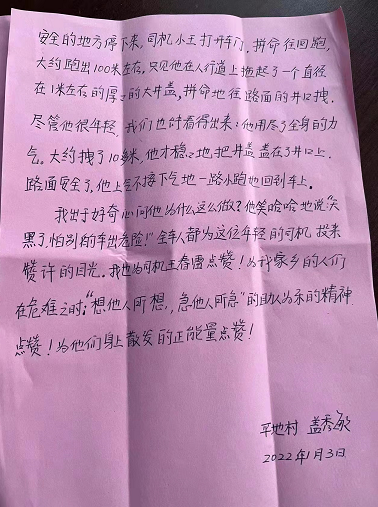 安全的地方停下来,司机小王打开车门,拼命往回跑,
大约跑出100米左右,只见他在人行道上拖起了一个直径
在1米左右的厚厚的大井盖,拼命地往路面的井口拽.
尽管他很年轻,我们也都看得出来:他用尽了全身的力
气。大约拽了10多米,他才稳稳地把井盖盖在了井口上.
路面安全了.他上气不接下气地一路小跑地回到车上.
我出于好奇心问他为什么这么做?他笑哈哈地说:"天
黑了,怕别的车出危险!"全车人都为这位年轻的司机投来
赞许的目光.我也为司机王春雷点赞!为许家乡的人们
在危难之时:"想他人所想,急他人所急"的助人为乐的精神
点赞!为他们身上散发的正能量点赞!
平地村 盖秀敏
2022年1月3日